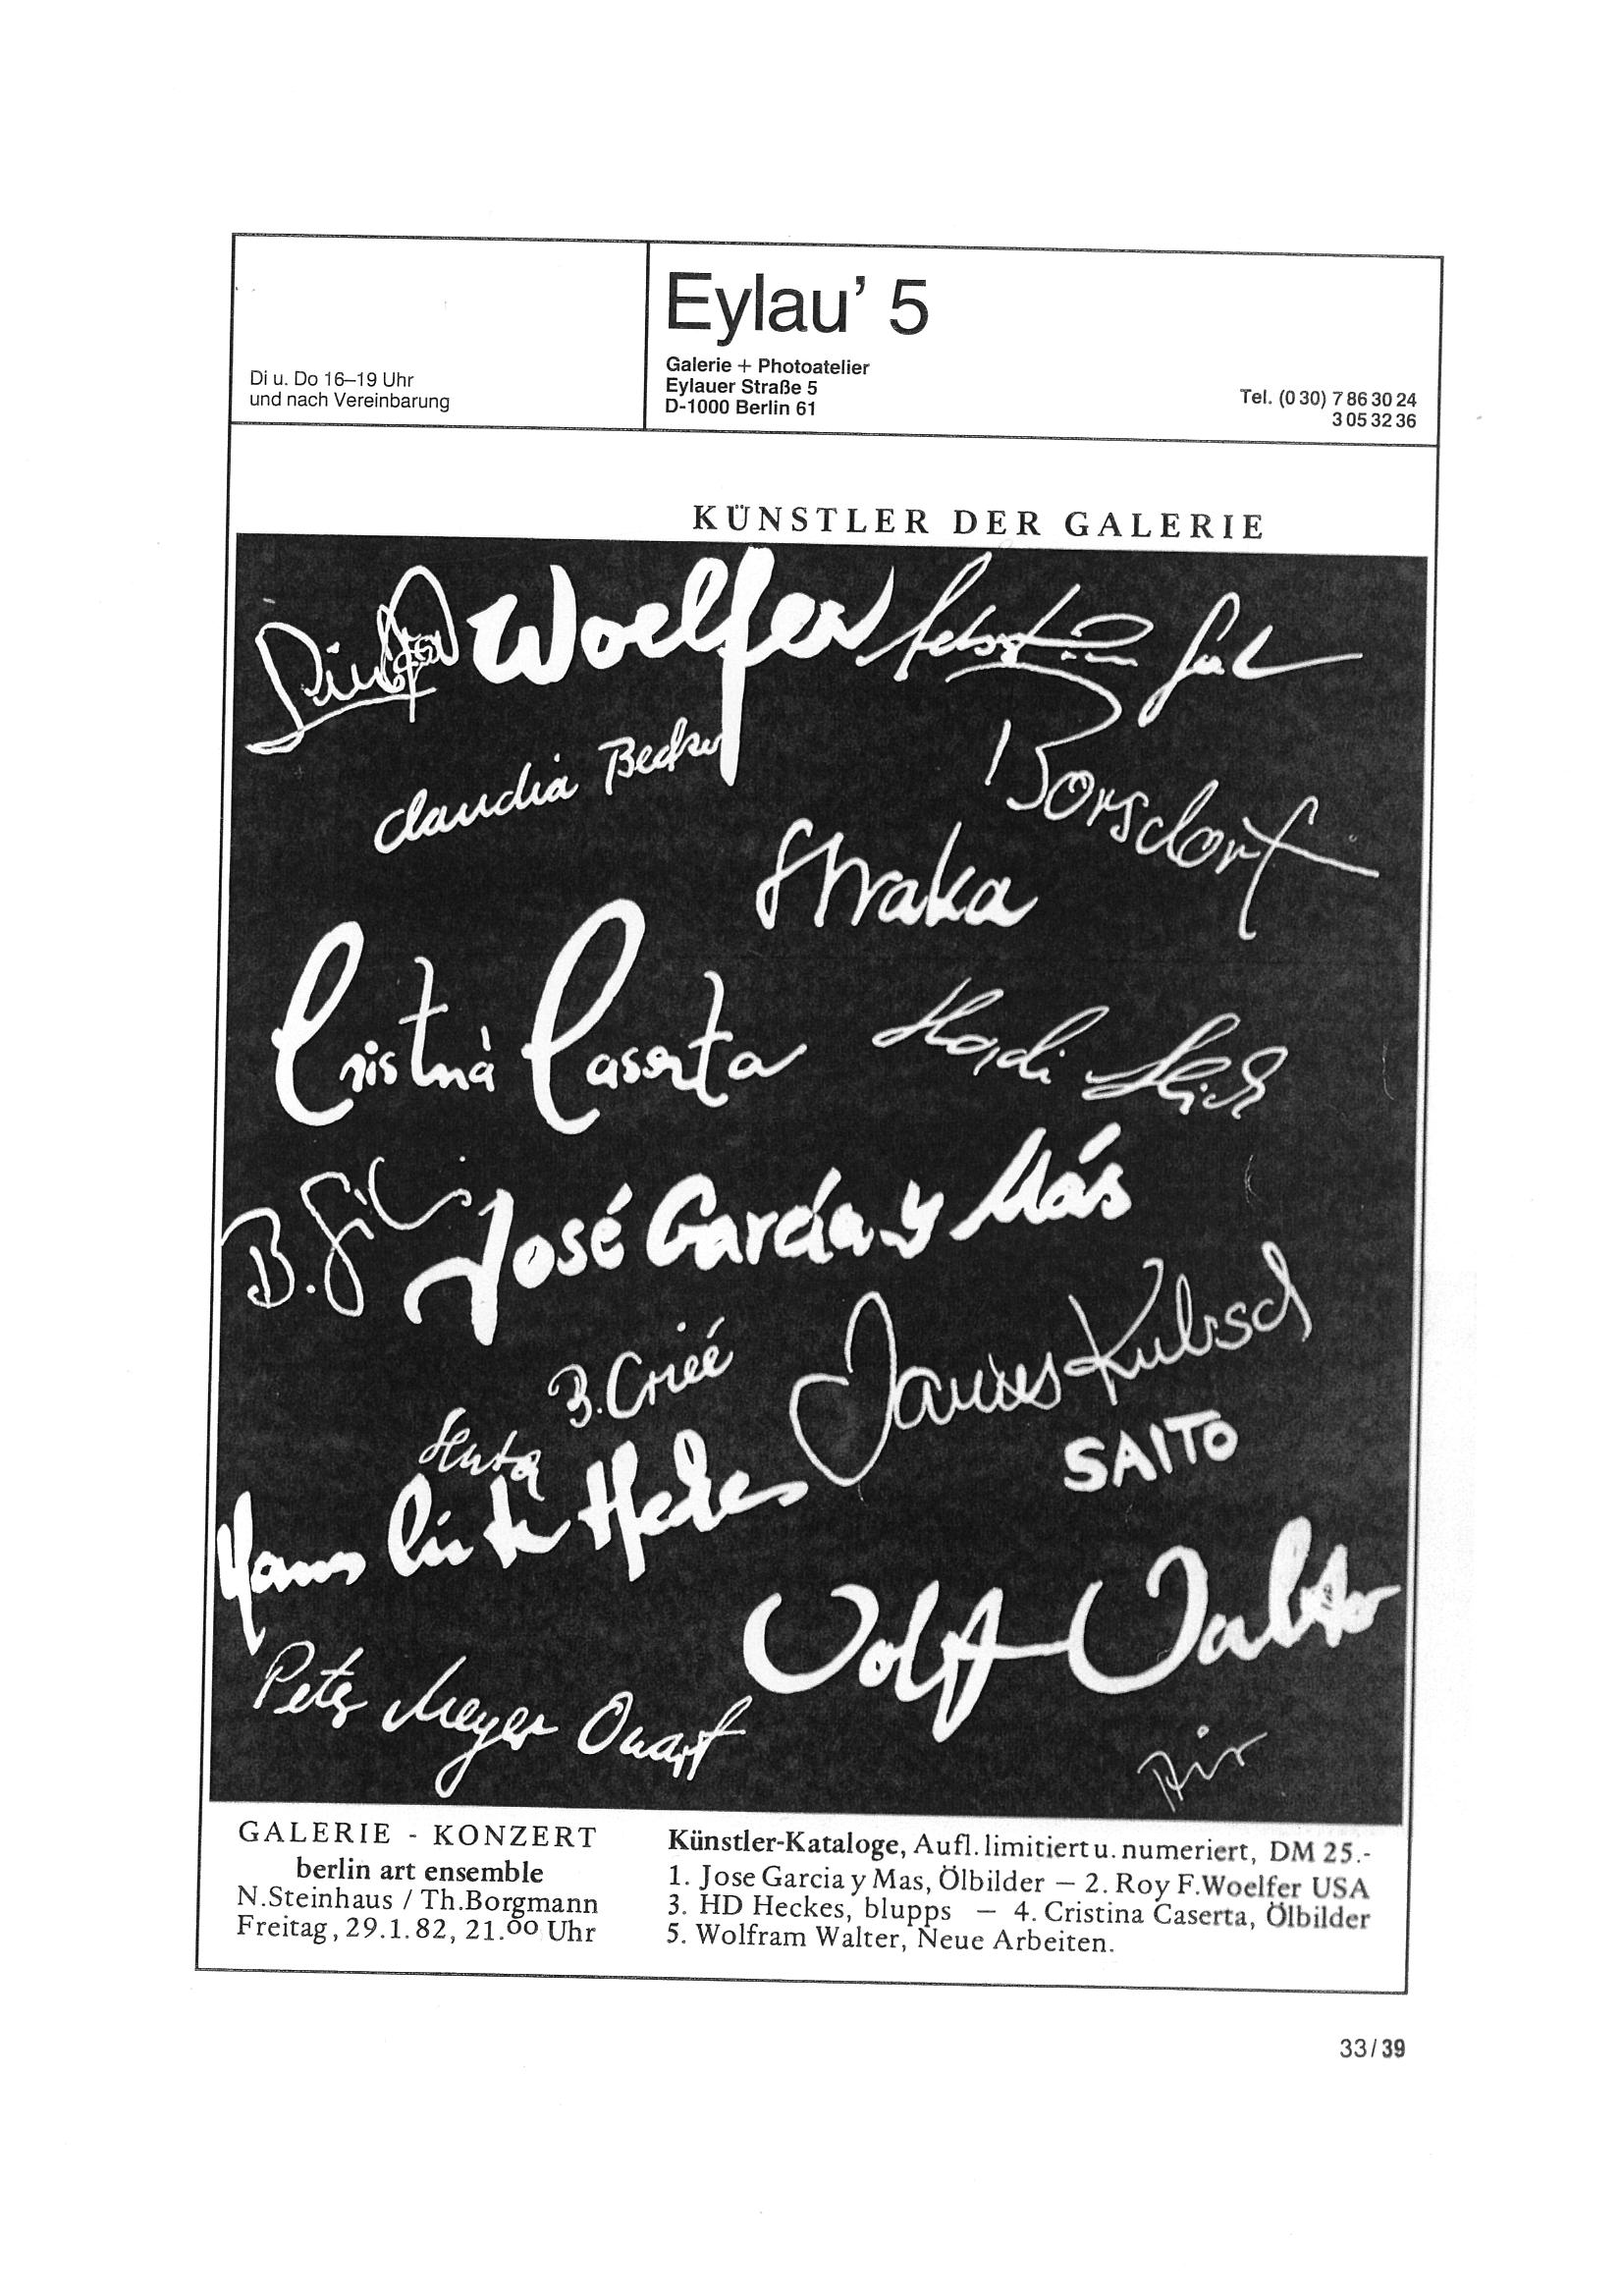 Eylau’ 5
Di u. Do 16–19 Uhr
und nach Vereinbarung
Galerie + Photoatelier
Eylauer Straße 5
D-1000 Berlin 61
Tel. (0 30) 7 86 30 24
3 05 32 36
KÜNSTLER DER GALERIE
Woelfer
Claudia Becker
Borsdorf
Straka
Cristina Caserta
Hadi
B. Gil
José García y Más
B. Criée
James Kubisch
SAITO
Hans Heckes
Wolf Walter
Peter Meyer
GALERIE - KONZERT
berlin art ensemble
N.Steinhaus / Th.Borgmann
Freitag, 29.1.82, 21.00 Uhr
Künstler-Kataloge, Aufl. limitiert u. numeriert, DM 25.-
1. Jose Garcia y Mas, Ölbilder – 2. Roy F.Woelfer USA
3. HD Heckes, blupps – 4. Cristina Caserta, Ölbilder
5. Wolfram Walter, Neue Arbeiten.
33/39